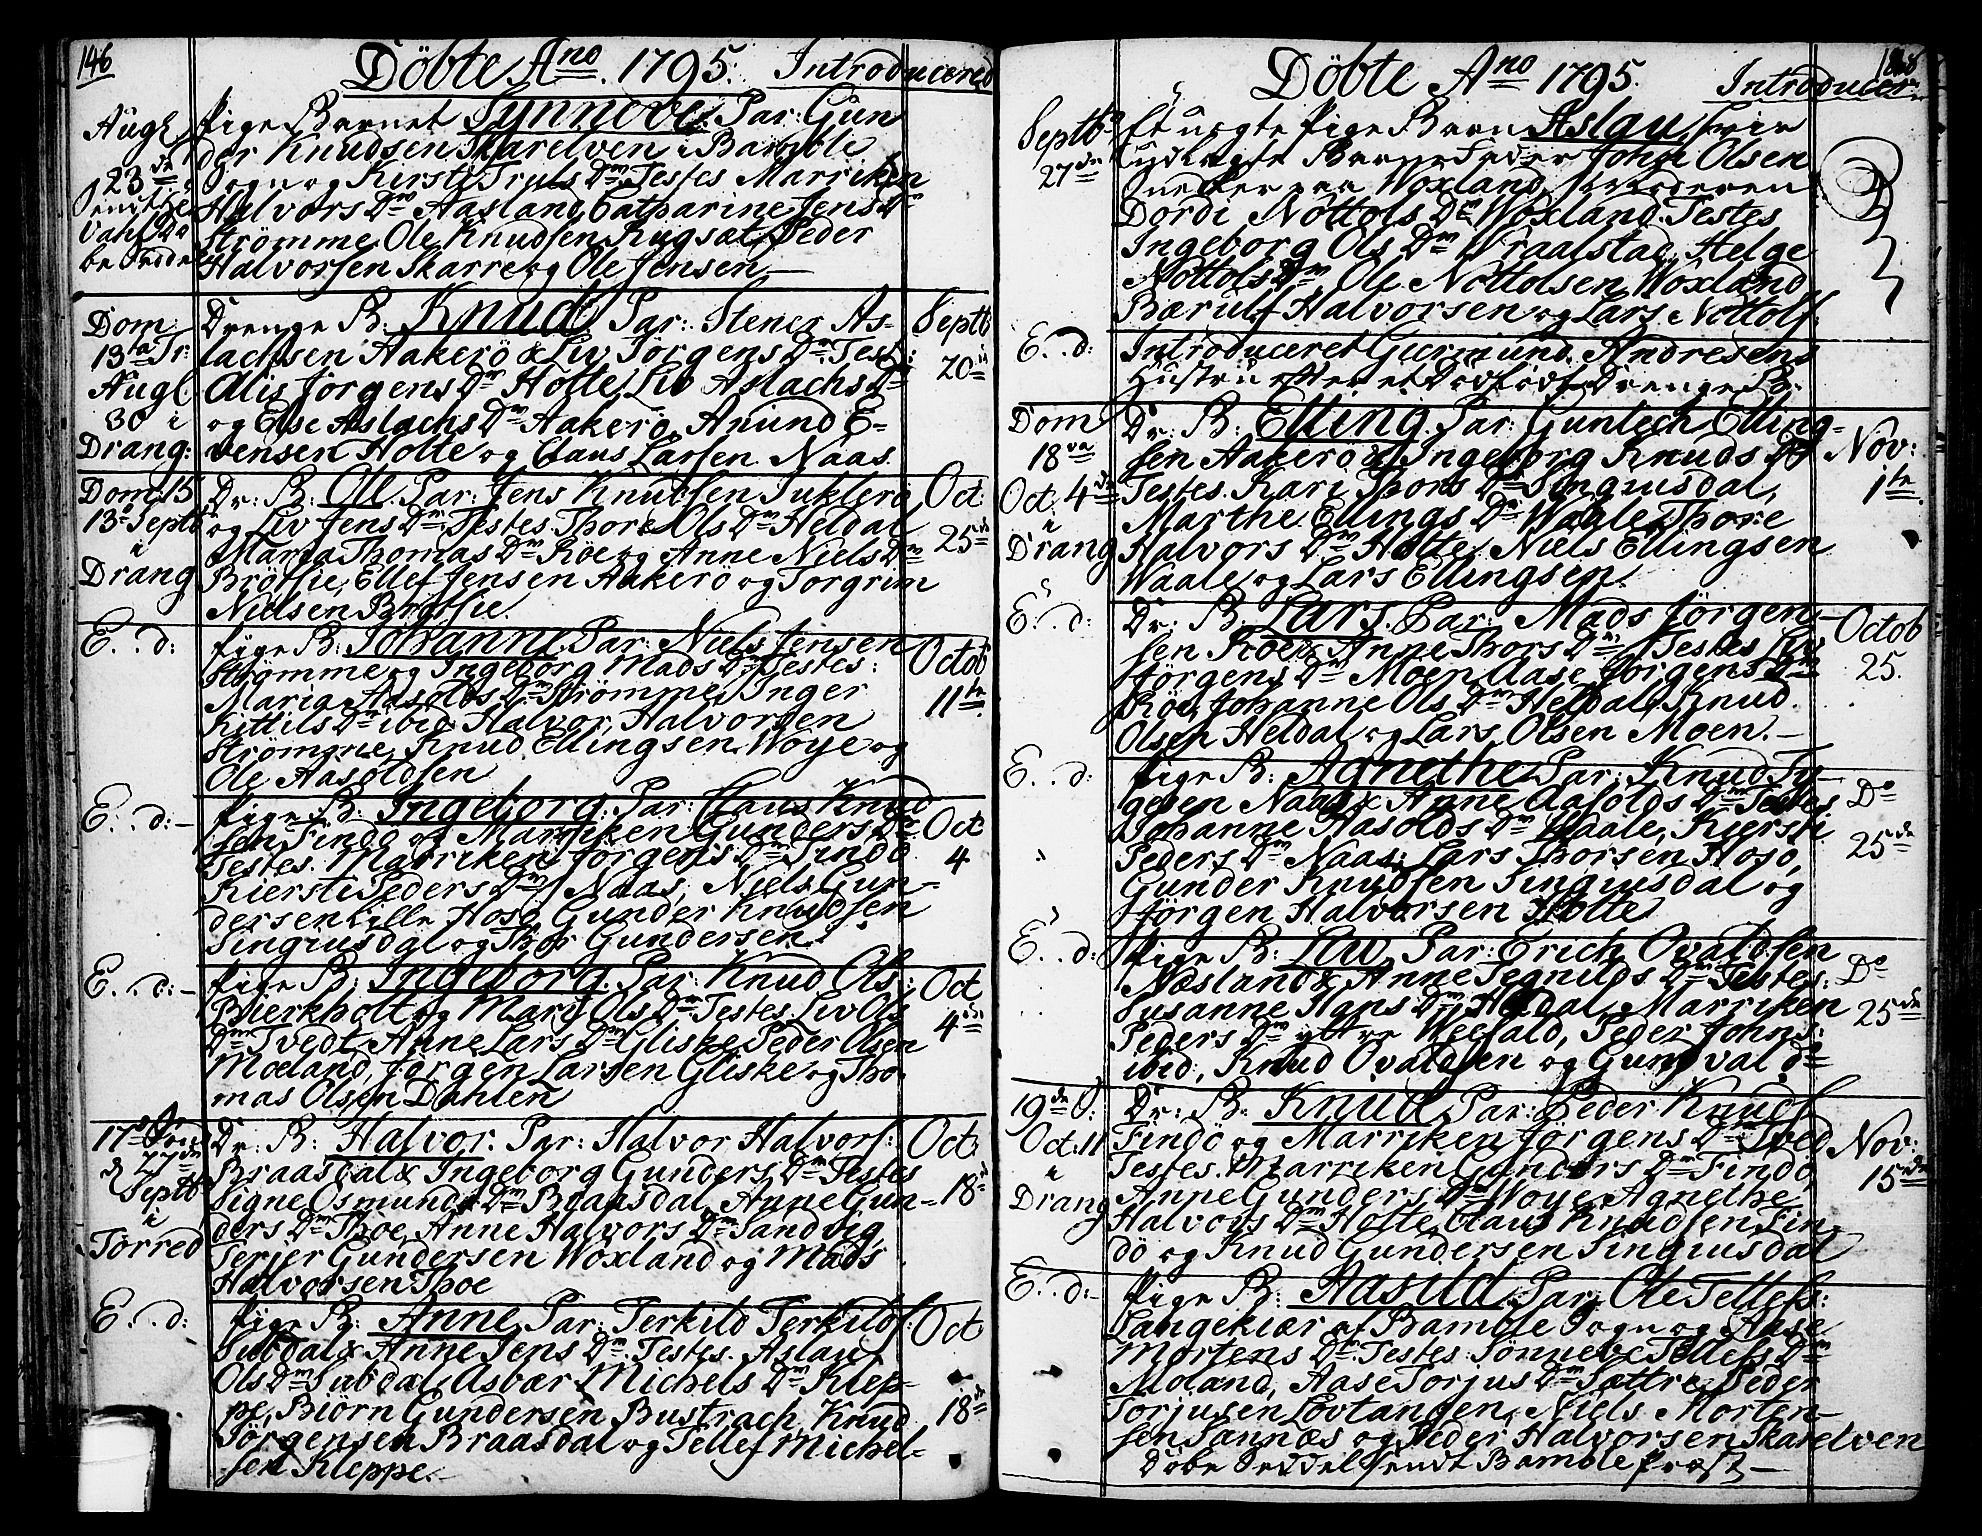 146
Döbte Ano. 1795. Introducered
Aug:
23de
Pige Barnet Synnöve. Par: Gun
der Knudsen Skarelven i Bamble
Sogn og Kirsti Truls Dm. Testes Marriken
Halvors Dm Aasland, Catharine Jens Dm
Strømme, Ole Knudsen Rugsat, Peder
Halvorsen Skarre og Ole Jensen.—
Dom:
13ta Tr:
Aug:
30 i
Drang:
Drenge B. Knud. Par: Stener As-
lachsen Aakerö & Liv Jörgens Dm Test:
Alis Jörgens Dm Holte, Liv Aslachs Dm
og Else Aslachs Dm Aakerö, Anund E-
vensen Holte og Claus Larsen Naas.
Septb
20
Dom 15
13 Septb
i
Drang
Dr: B: Ole. Par: Jens Knudsen Suklerö
og Liv Jens Dm. Testes. Thore Ols Dm Heldal
Maria Thomas Dm Röe og Anne Niels Dm
Brössie, Ellef Jensen Aakerö og Torgrim
Nielsen Brössie.
Oct:
25de
E. d:
Pige B: Johanne. Par: Niels Jensen
Strømme og Ingeborg Mads Dm Testes:
Maria Aasolds Dm Strømme, Inger
Kittils Dm ibid. Halvor Halvorsen
Strømme, Knud Ellingsen Woye og
Ole Aasoldsen
Octob
11te
E. d:—
Pige B. Ingeborg. Par: Claus Knud
sen Findö og Marriken Gunders Dm
Testes. Marriken Jörgens Dm Findö
Kiersti Peders Dm Naas, Niels Gun-
dersen Lille Hosö, Gunder Knudsen
Singiusdal og Thor Gundersen.
Oct
4
E. d:—
Pige B: Ingeborg. Par: Knud Ols:
Bierkholt og Mari Ols Dm Testes. Liv Ols
Dm Tvedt, Anne Lars Dm Gliske, Peder Olsen
Moeland, Jörgen Larsen Gliske og Tho-
mas Olsen Dahlen
Oct
4de
17
d 27de
Septb
i
Törred
Dr: B: Halvor. Par: Halvor Halvors:
Braasdal & Ingeborg Gunders Dm Testes
Signe Osmunds Dm Braasdal, Anne Gun-
ders Dm Thoe, Anne Halvors Dm Sandvig
Terjer Gundersen Woxland og Mads
Halvorsen Thoe
Oct:
18
E. d:
Pige B: Anne. Par: Terkild Terkilds:
Subdal & Anne Jens Dm. Testes. Aslau
Ols Dm Subdal, Asbør Michels Dm Klep-
pe, Biörn Gundersen Bustrach, Knud
Jörgensen Braasdal og Tellef Michel-
sen Kleppe.—
Oct
18de
Döbte Ano 1795. Introducer
Septb
27de
Et uægte Pige Barn Aslau,
udlagte Barne Fader John Olsen
paa Woxland, Moderen
Dordi Nottols Dm Woxland. Testes
Ingeborg Ols Dm Wraalstad, Helge
Nottols Dm, Ole Nottolsen Woxland
Bærulf Halvorsen og Lars Nottols:
E. d:
Introduceret Giermund Andresens
Hustru efter et Dödfödt Drenge B.
Dom
18va
Oct. 4de
i
Drang
Dr: B: Elling. Par: Guntech Elling-
sen Aakerö & Ingeborg Knuds D
Testes. Kari Thors Dm Singiusdal,
Marthe Ellings Dm Waale, Thore
Halvors Dm Holte, Niels Ellingsen
Waale og Lars Ellingsen.
Nov:
1te
E. d:
Dr: B: Lars. Par: Mads Jörgen-
sen Röe & Anne Thors Dm. Testes Liv
Jörgens Dm Moen, Aase Jörgens Dm
Röe, Johanne Ols Dm Heldal, Knud
Olsen Heldal og Lars Olsen Moen.—
Octob
25.
E. d:
Pige B: Agnethe. Par: Knud Ty-
gesen Naas & Anne Aasolds Dm Testes
Johanne Aasolds Dm Waale, Kiersti
Peders Dm Naas, Lars Thorsen Hosö,
Gunder Knudsen Singiusdal og
Jörgen Halvorsen Holte
Do
25de
E. d:
Pige B: Liv. Par: Erich Ovaldsen
Næsland & Anne Tegnilds Dm Testes:
Susanne Hans Dm Heldal, Marriken
Peders Dm yttre Weefald, Peder Johns:
ibid, Knud Ovaldsen og Gundval do
Do
25de
19de
Oct: 11
i
Drang
Dr: B: Knud. Par: Peder Knuds:
Findö og Marriken Jörgens Dm Tved
Testes. Marriken Gunders Dm Findö,
Anne Gunders Dm Woye, Agnethe
Halvors Dm Holte, Claus Knudsen Fin-
dö og Knud Gundersen Singiusdal
Nov:
15de
E. d:—
Pige B: Aasild. Par: Ole Tellefs:
Langekiær af Bamble Sogn og Aase
Mortens Dm Testes Sönneve Tellefs Dm
Moland, Aase Torjus Dm Sættre, Peder
Torjusen Lovtangen, Niels Morten-
sen Sannæs og Peder Halvorsen Skarelven
Döbe Seddel sendt Bamble Præst—